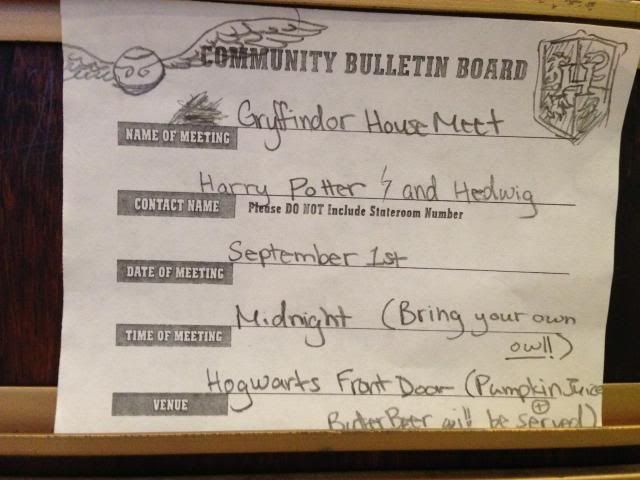 COMMUNITY BULLETIN BOARD
Gryffindor House Meet
NAME OF MEETING
Harry Potter and Hedwig
CONTACT NAME Please DO NOT Include Stateroom Number
September 1st
DATE OF MEETING
Midnight (Bring your own
owl!!)
TIME OF MEETING
Hogwarts Front Door (Pumpkin Juice
VENUE
+
ButterBeer will be served)